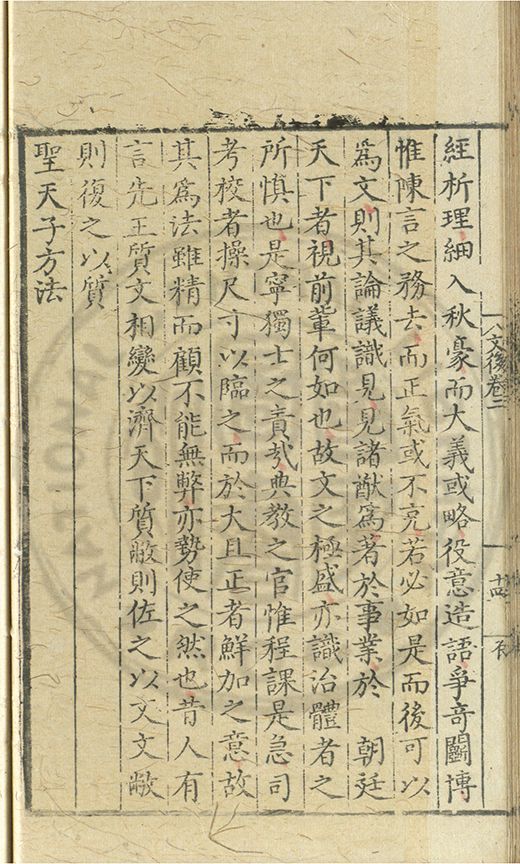 八文後卷二
十四
經析理細入秋豪而大義或略役意造語爭奇鬭博
惟陳言之務去而正氣或不充若必如是而後可以
爲文則其論議識見見諸猷爲著於事業於　朝廷
天下者視前輩何如也故文之極盛亦識治體者之
所慎也是寧獨士之責㢤典教之官惟程課是急司
考校者操尺寸以臨之而於大且正者鮮加之意故
其爲法雖精而顧不能無弊亦勢使之然也昔人有
言先王質文相變以濟天下質敝則佐之以文文敝
則復之以質
聖天子方法